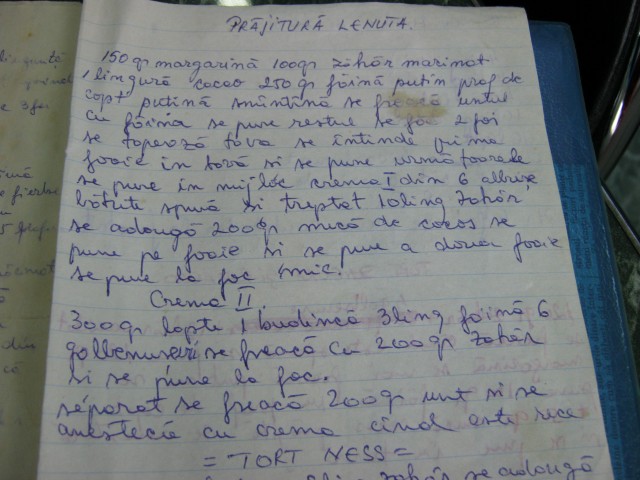 PRĂJITURĂ LENUTA.
150 gr margarină 100 gr zahăr marinat
1 lingură cacao 250 gr făină putin praf de
copt putină smîntînă se freacă untul
cu făina se pune restul se fac 2 foi
se tapează tava se întinde prima
foaie in tavă si se pune urmă
se pune în mijloc crema I din 6 albușe
bătute spumă si treptat 10 ling zahăr,
se adaugă 200 gr nucă de cocos se
pune pe foaie si se pune a doua foaie
se pune la foc mic.
Crema II.
300 gr lapte 1 budincă 3 ling făină 6
gălbenusuri se freacă cu 200 gr zahăr
si se pune la foc.
separat se freacă 200 gr unt si se
amestecă cu crema cînd este rece
= TORT NESS =
zahăr se adaugă